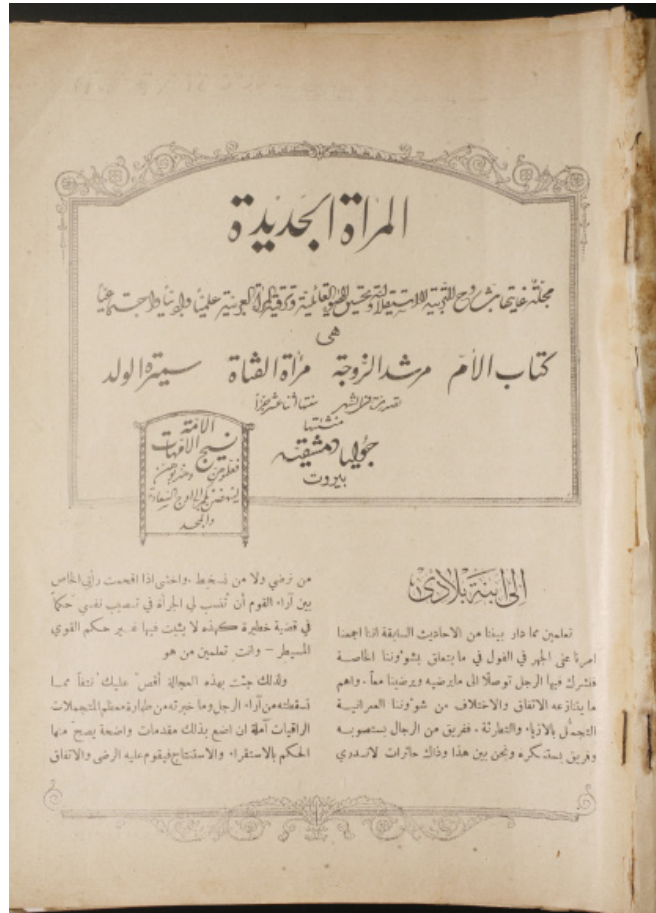 المرأة الجديدة
مجلة غايتها بث روح التربية الاستقلالية وتحسين الشؤون العائلية وترقية المرأة العربية علمياً وادبياً واجتماعياً
هي
كتاب الأم مرشد الزوجة مرآة الفتاة سيرة الولد
تصدر مرة في الشهر سنتها اثنا عشر جزءاً
منشئتها
جوليا دمشقية
بيروت
الامة
نسيج الامهات
فعلموهن
لينهضن بكم الى اوج السعادة
والمجد
الى ابنة بلادي
تعلمين مما دار بيننا من الاحاديث السابقة اننا اجمعنا
امرنا على الجهر في القول في ما يتعلق بشوٴوننا الخاصة
فنشرك فيها الرجل توصلاً الى ما يرضيه ويرضينا معاً . واهم
ما يتنازعه الاتفاق والاختلاف من شوٴوننا العمرانية
التجمّل بالازياء والتطرئة . ففريق من الرجال يستصوبه
وفريق يستنكره ونحن بين هذا وذاك حائرات لا ندري
من نرضي ولا من نسخط . واخشى اذا اقحمت رأيي الخاص
بين آراء القوم أن تُنسب لي الجرأة في تنصيب نفسي حكماً
في قضية خطيرة كهذه لا يثبت فيها غير حكم القوي
المسيطر – وانتِ تعلمين من هو
ولذلك جئت بهذه العجالة أقصّ عليك نتفاً مما
تسقطته من آراء الرجل وما خبرته من طهارة معظم المتجملات
الراقيات آملة ان اضع بذلك مقدمات واضحة يصحّ منها
الحكم بالاستقراء والاستنتاج فيقوم عليه الرضى والاتفاق